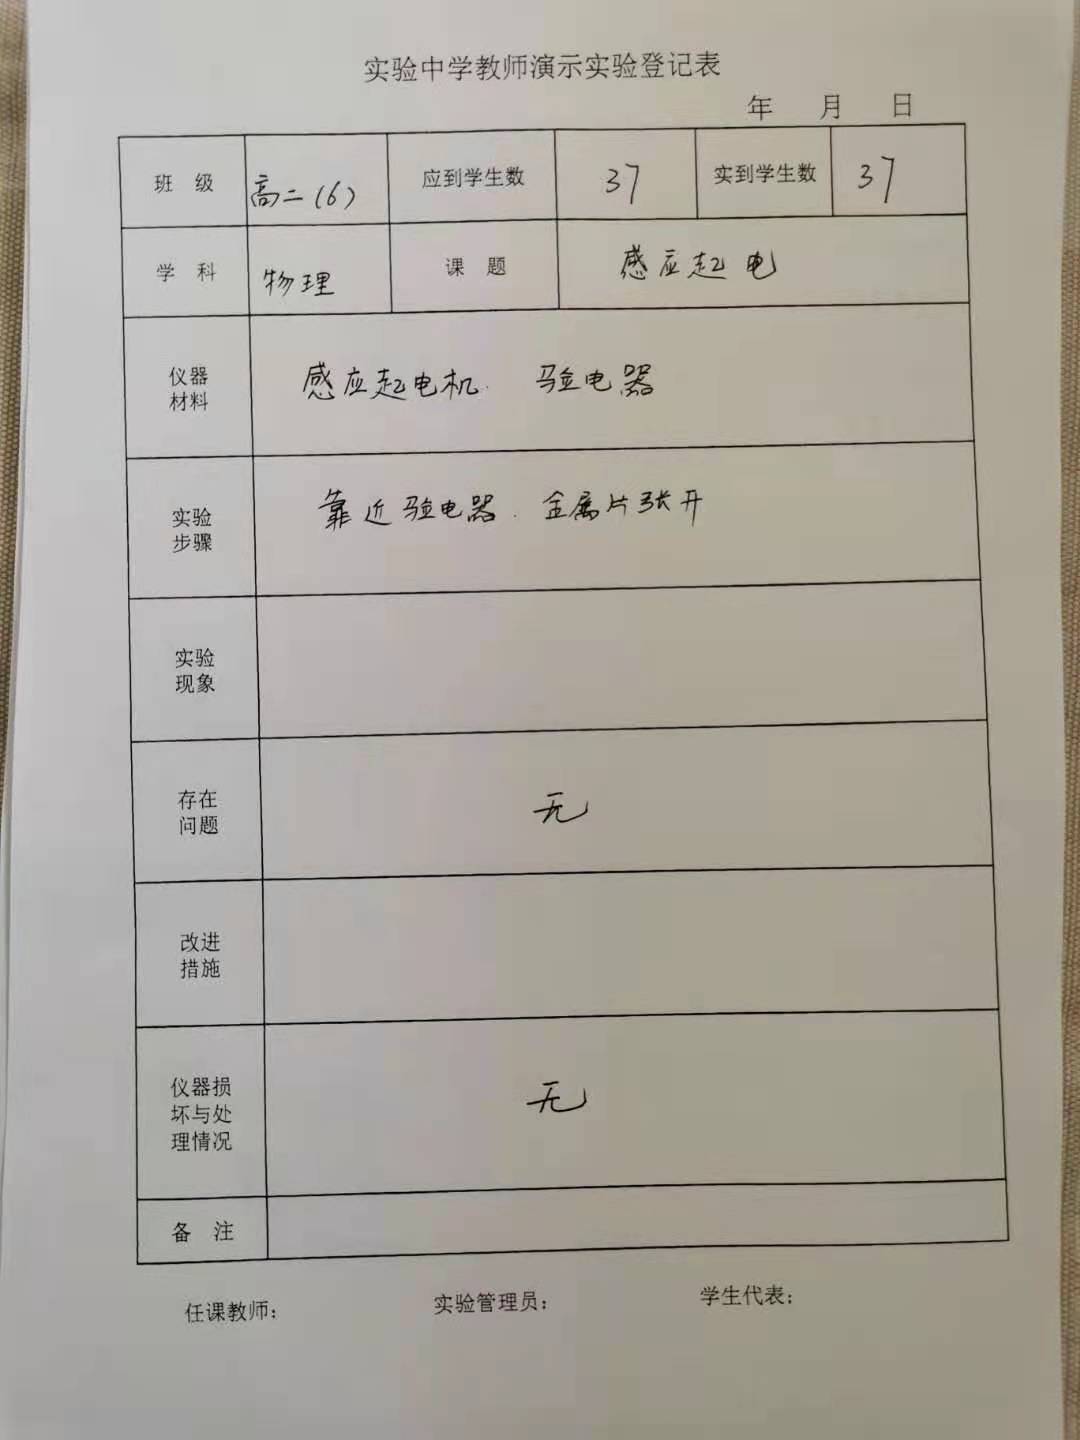 实验中学教师演示实验登记表
年 月 日
班 级 高二(6) 应到学生数 37 实到学生数 37
学 科 物理 课 题 感应起电
仪器
材料
感应起电机. 验电器
实验
步骤
靠近验电器. 金属片张开
实验
现象
存在
问题
无
改进
措施
仪器损
坏与处
理情况
无
备 注
任课教师: 实验管理员: 学生代表: